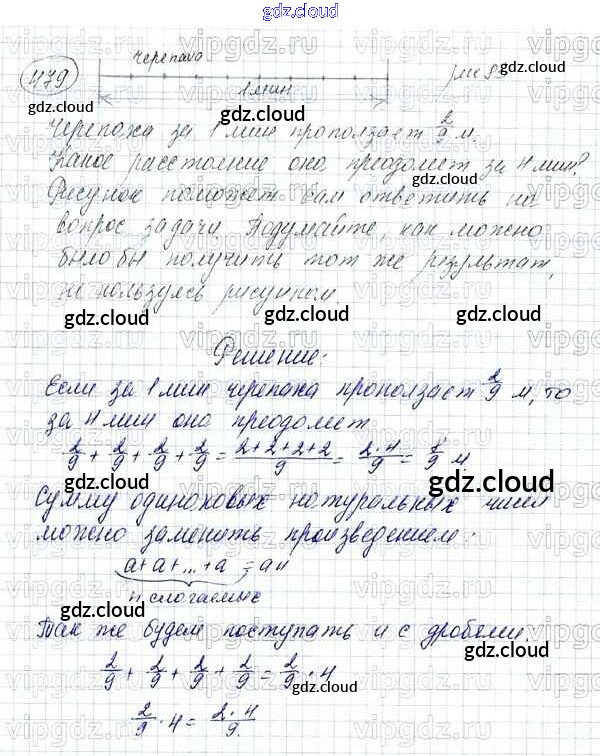 gdz.cloud
479 черепаха
1 мин
Черепаха за 1 мин проползает 2/9 м.
Какое расстояние она преодолеет за 4 мин?
Рисунок поможет Вам ответить на
вопрос задачи. Подумайте, как можно
было бы получить тот же результат,
не пользуясь рисунком
gdz.cloud gdz.cloud gdz.cloud
Решение:
Если за 1 мин черепаха проползает 2/9 м, то
за 4 мин она преодолеет
2/9 + 2/9 + 2/9 + 2/9 = (2+2+2+2)/9 = (2·4)/9 = 8/9 м.
gdz.cloud gdz.cloud
Сумму одинаковых натуральных чисел
можно заменить произведением:
a+a+...+a = an
n слагаемых
gdz.cloud gdz.cloud
Так же будем поступать и с дробями.
2/9 + 2/9 + 2/9 + 2/9 = 2/9 · 4
gdz.cloud
2/9 · 4 = (2·4)/9.